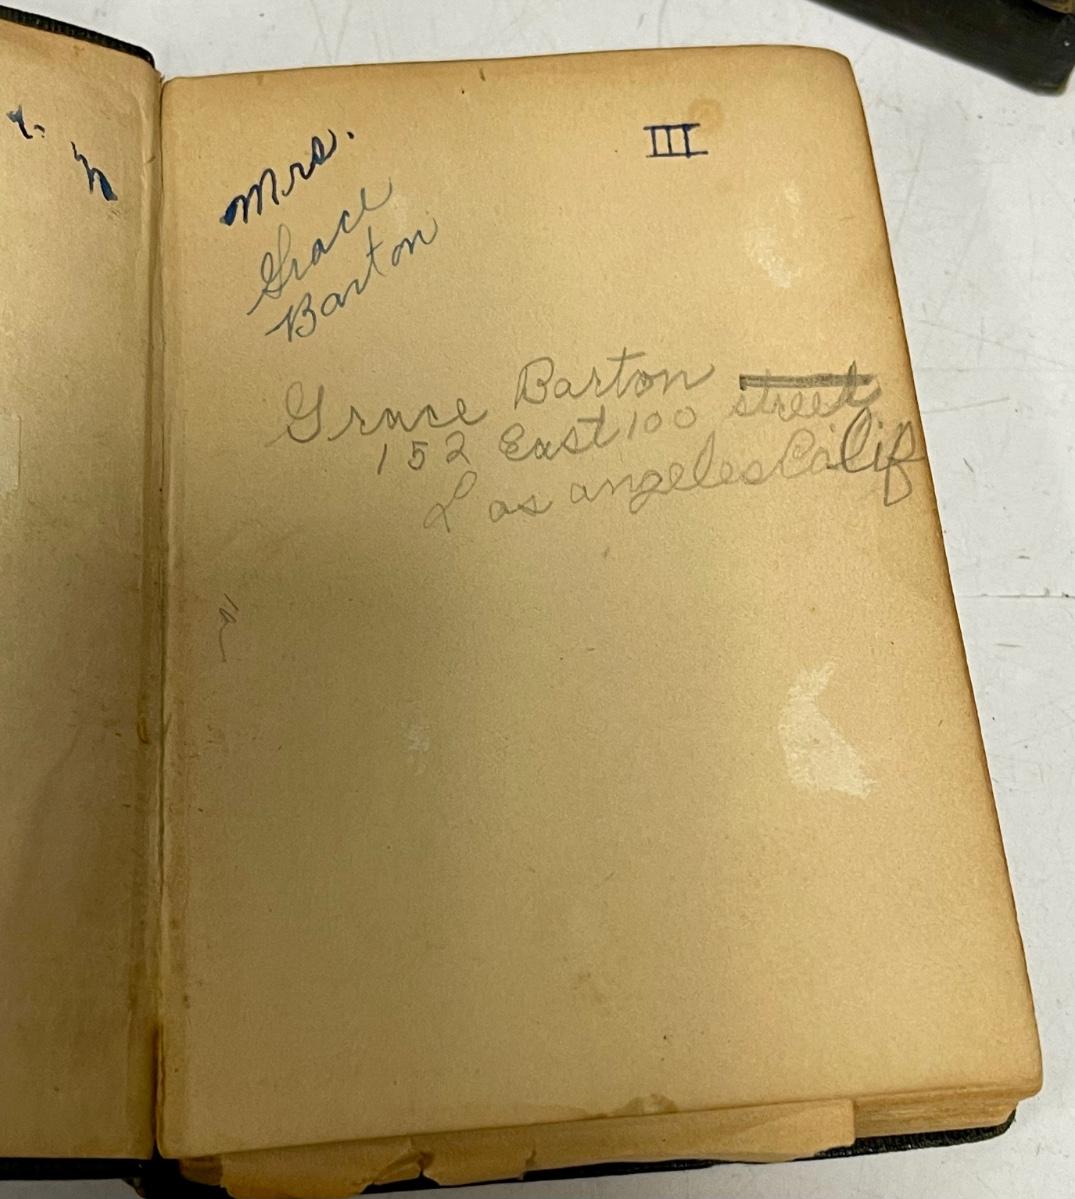 Mrs.
III
Grace
Barton
Grace Barton
152 East 100 street
Los angeles Calif